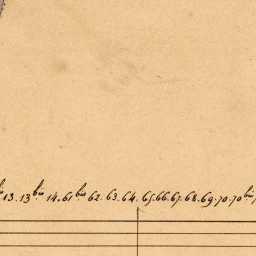 13. 13 bis 14. 61 bis 62. 63. 64. 65. 66. 67. 68. 69. 70. 70 bis